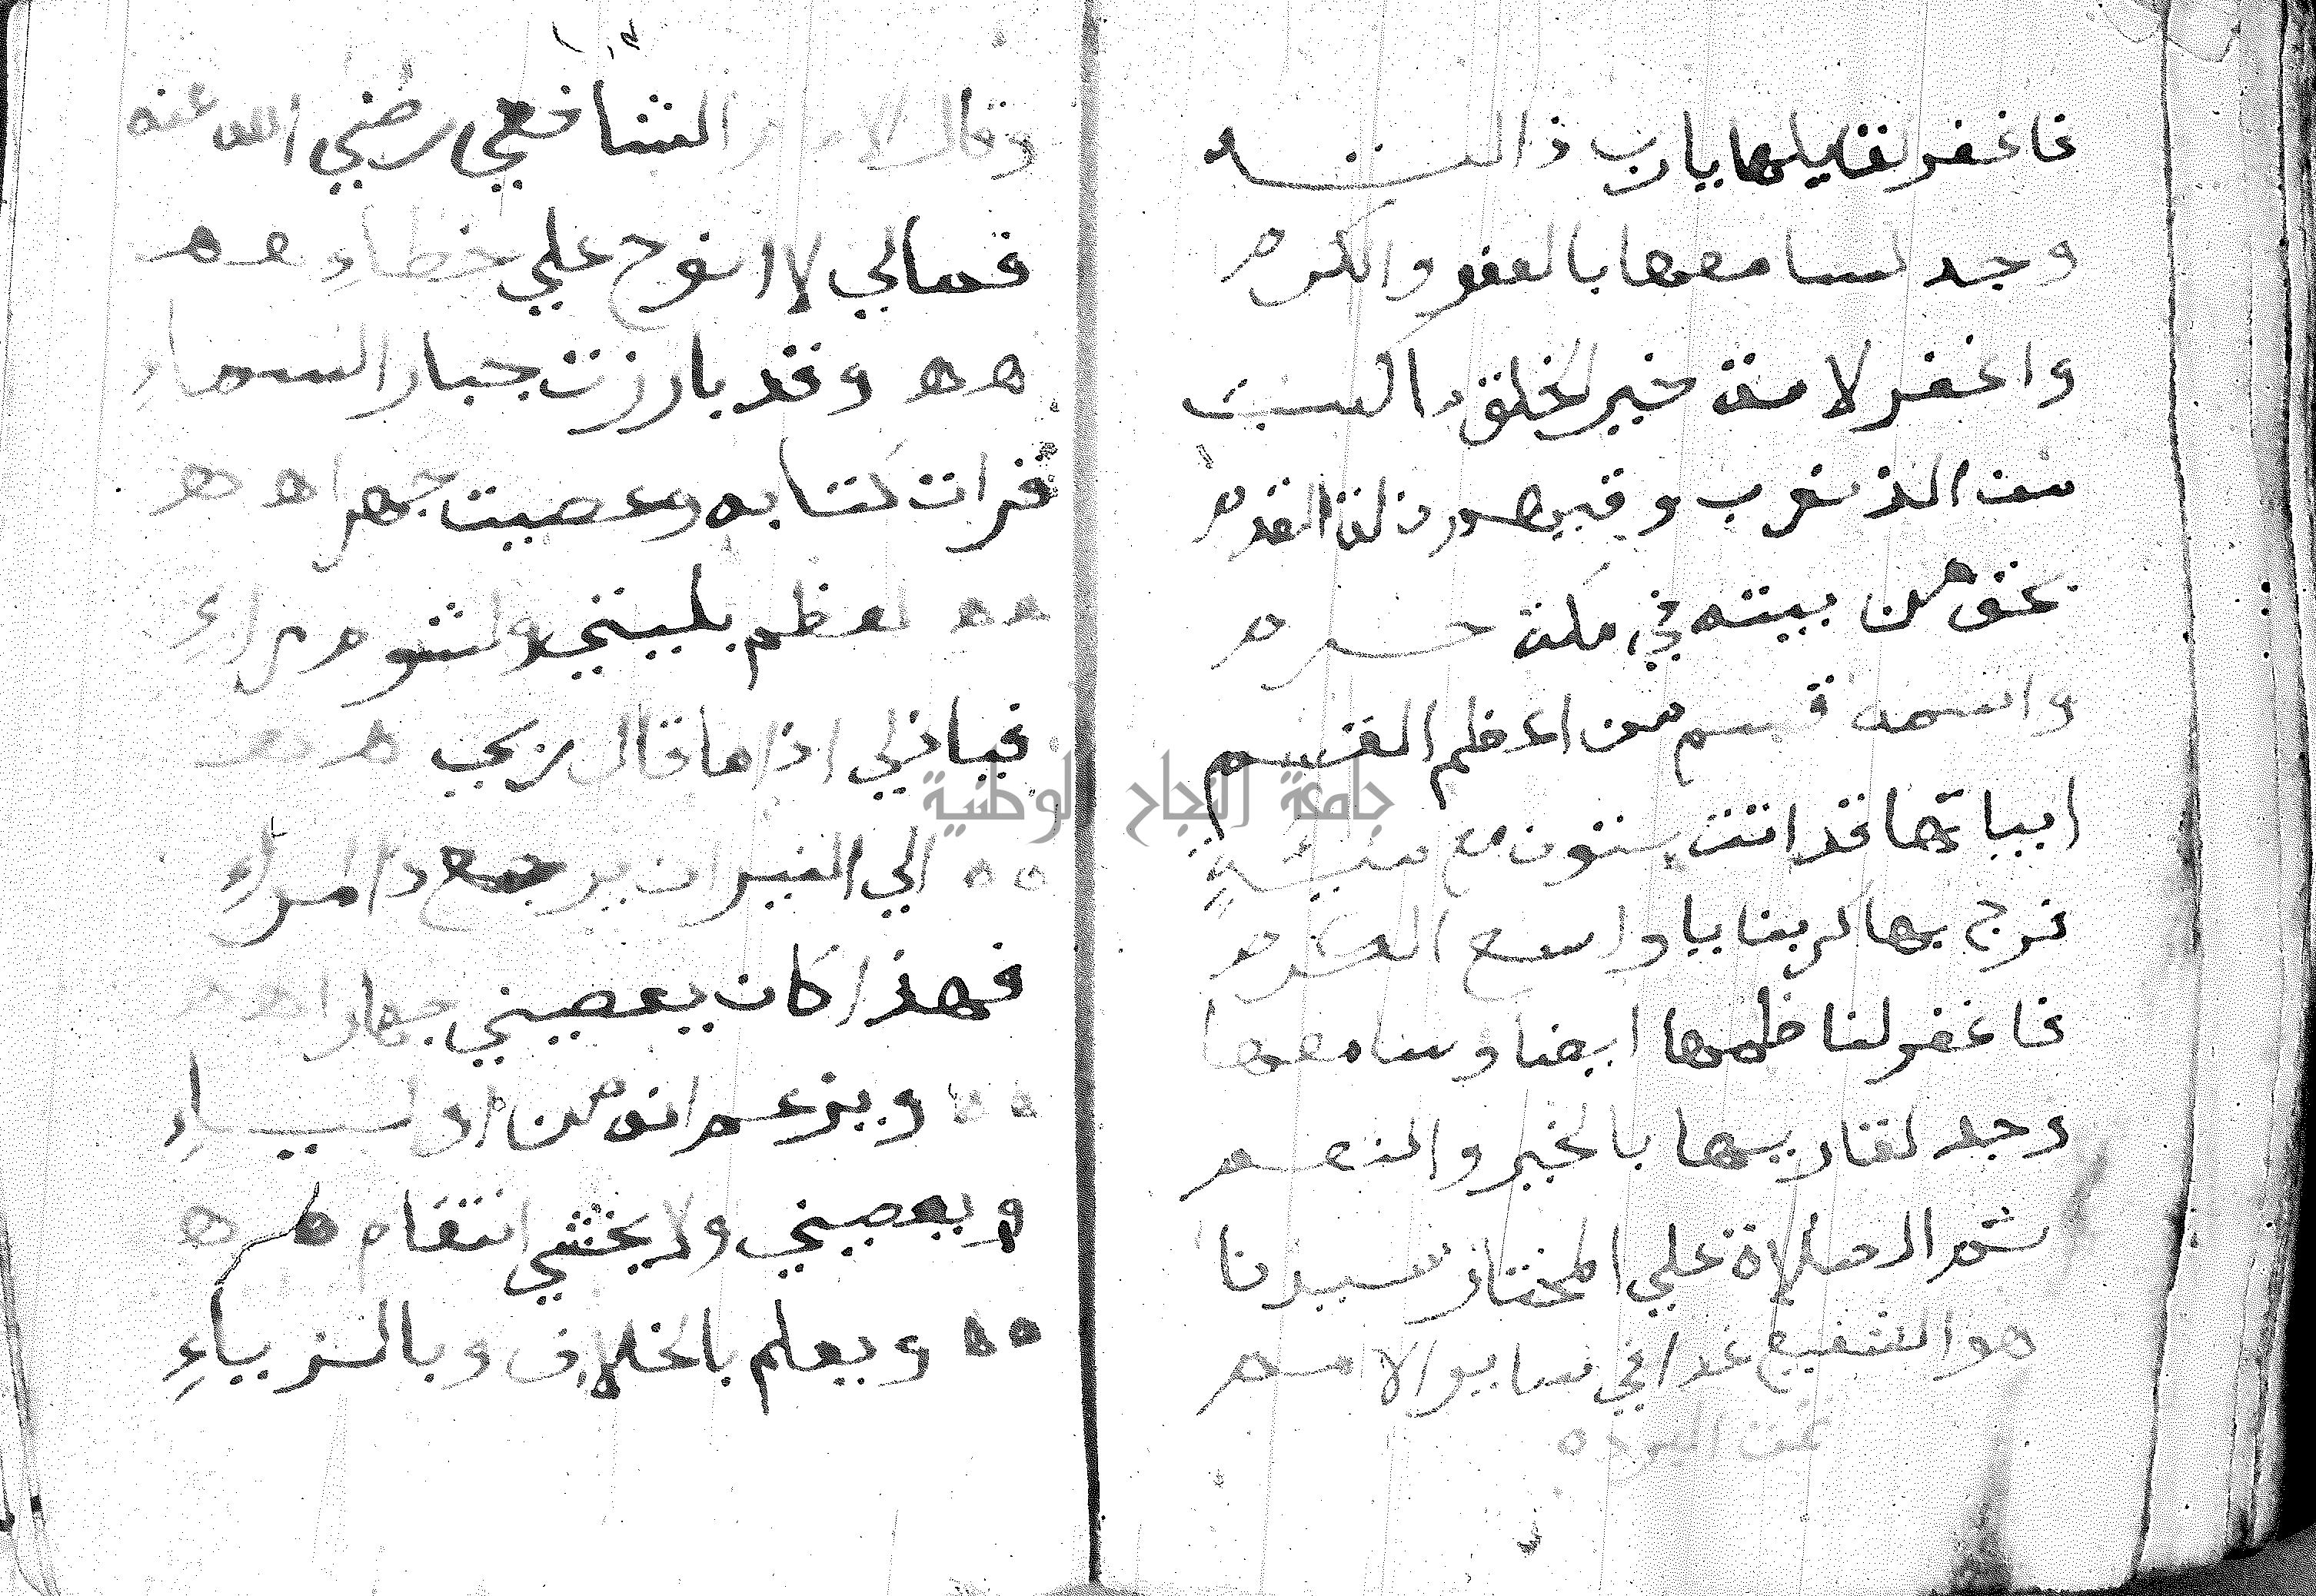 فاغفر لقايلها يا رب ذا السنه
وجد لسامعها بالعفو والكرم
واغفر لامة خير الخلق ما اكتسبت
من الذنوب وقيهم زلة القدم
بحق من بيته في مكة حرم
واسمه قسم من اعظم القسم
ابياتها قد اتت ستون مع مئيةٍ
فرج بها كربنا يا واسع الكرم
فاغفر لناظمها ايضا وسامعها
وجد لقاريها بالخير والنعم
ثم الصلاة علي المختار سيدنا
هو الشفيع غدا في ساير الامم
تمت البرده
وقال الامام الشافعي رضي الله عنه
فمالي لا انوح علي خطاءِ ه ه
ه ه وقد بارزت جبار السماءِ
قرات كتابه وعصيت جهرا ه ه
ه ه لعظم بليتي ولشوم راءِ
فيا ذلي اذا ما قال ربي ه
ه ه الي النيران يرجع ذا المراءِ
فهذا كان يعصيني جهارا ه ه
ه ه ويزعم انه من اوليـاءِ
ويعصيني ولا يخشي انتقام ه ه
ه ه ويعلم بالخلاف وبالريـاءِ
جامعة النجاح الوطنية